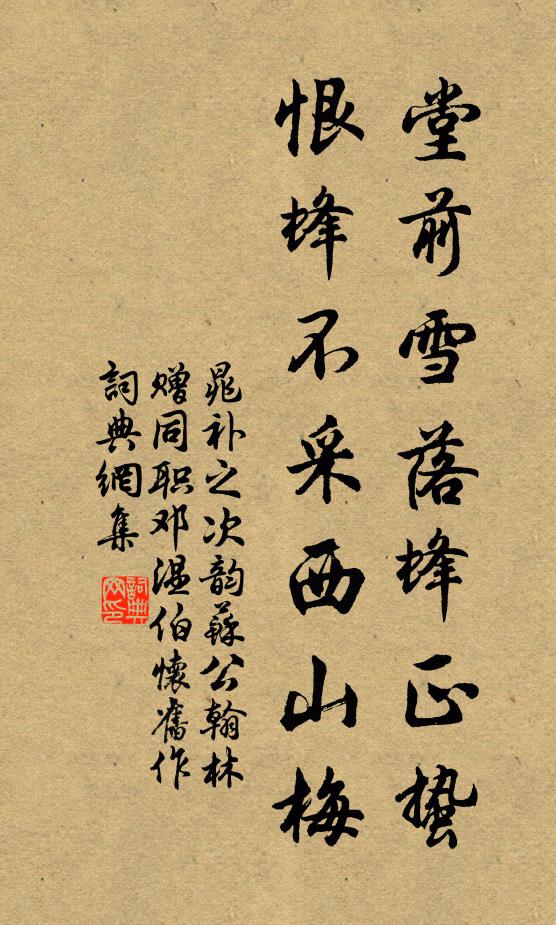 堂前雪落蜂正蟄
恨蜂不采西山梅
晁补之次韵蘇公翰林
赠同职邓温伯懷舊作
詞典網集
詞典網印